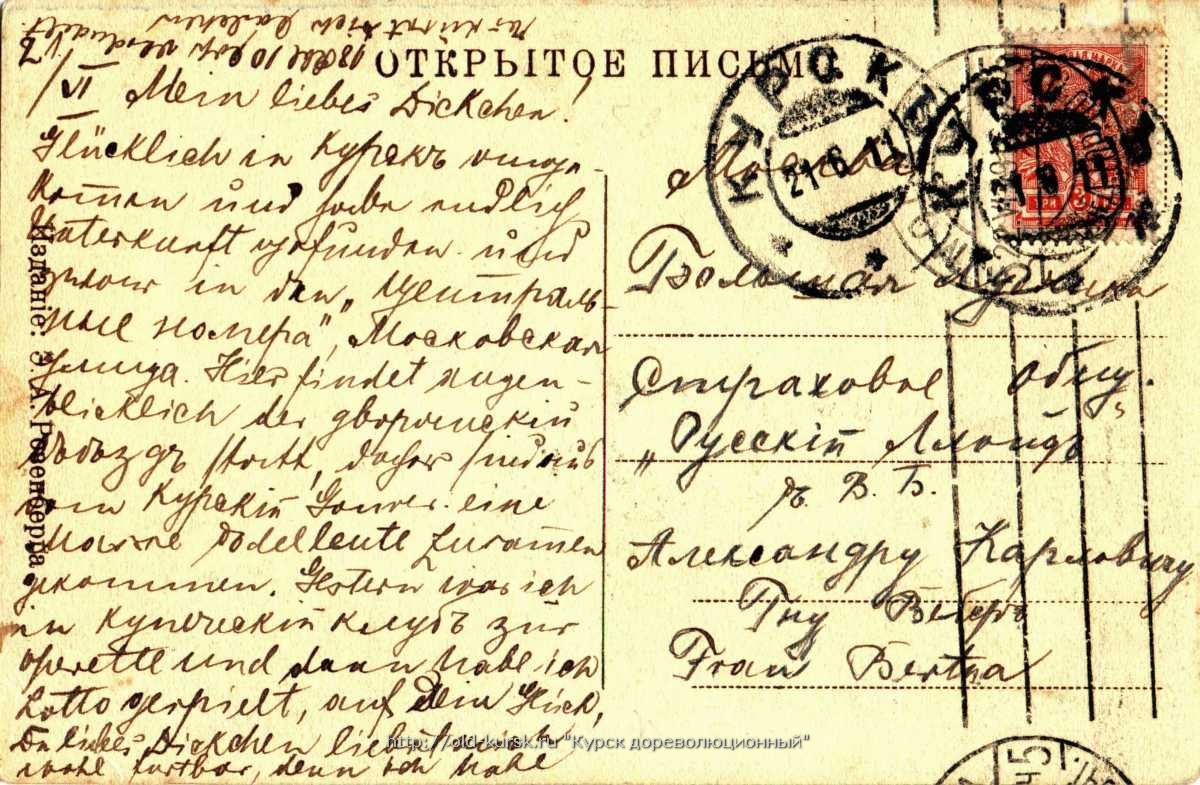 ОТКРЫТОЕ ПИСЬМО.
VI Mein liebes Dickchen!
Glücklich in Курскъ ange-
kommen und habe endlich
Unterkunft gefunden und
zwar in den „Централь-
ные номера", Московская
улица. Hier findet augen-
blicklich der дворянскій
съѣздъ statt, daher sind aus
dem Курскій Gouver. eine
Masse Edelleute zusammen
gekommen. Gestern war ich
in Купеческій клубъ zur
Operette und dann habe ich
Lotto gespielt, auf Dein Glück,
Du liebes Dickchen
wohl furtbar, denn ich habe
10
Изданіе: Э. А. Розенберга.
КУРСКЪ
21·6·11
КУРСКЪ
11
ТРИ 3
Москва
Большая Лубянка
Страховое общ.
„Русскій Ллойдъ"
В. Б.
Александру Карловичу
Гну Веберъ
Frau Bertha
http://old-kursk.ru "Курск дореволюционный"